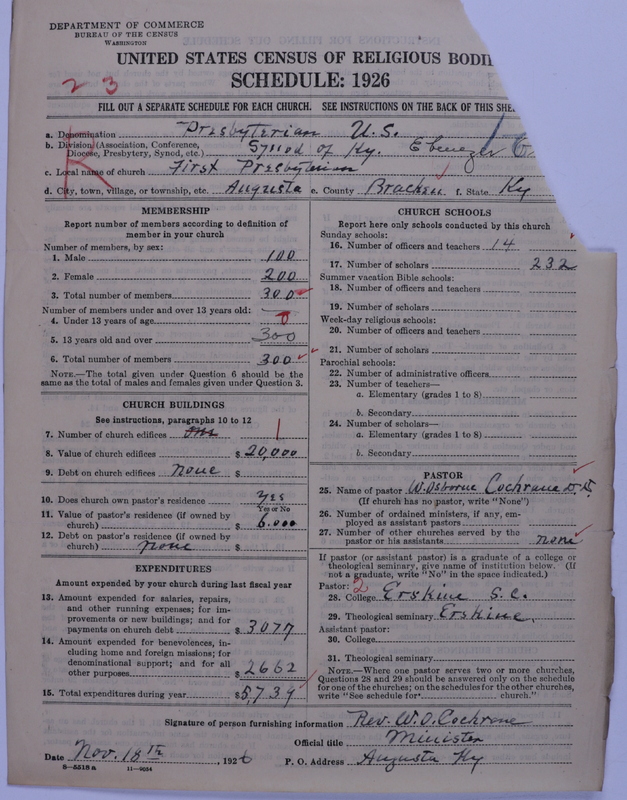 DEPARTMENT OF COMMERCE
BUREAU OF THE CENSUS
WASHINGTON
UNITED STATES CENSUS OF RELIGIOUS BODI
SCHEDULE: 1926
2 3
FILL OUT A SEPARATE SCHEDULE FOR EACH CHURCH. SEE INSTRUCTIONS ON THE BACK OF THIS SHE
a. Denomination Presbyterian U.S.
b. Division (Association, Conference, Diocese, Presbytery, Synod, etc.) Synod of Ky. Ebenezer
c. Local name of church First Presbyterian
d. City, town, village, or township, etc. Augusta e. County Bracken f. State Ky
MEMBERSHIP
Report number of members according to definition of
member in your church
Number of members, by sex:
1. Male 100
2. Female 200
3. Total number of members 300
Number of members under and over 13 years old:
4. Under 13 years of age 0
5. 13 years old and over 300
6. Total number of members 300
NOTE.—The total given under Question 6 should be the
same as the total of males and females given under Question 3.
CHURCH BUILDINGS
See instructions, paragraphs 10 to 12
7. Number of church edifices one 1
8. Value of church edifices $ 20,000
9. Debt on church edifices none $
10. Does church own pastor's residence yes
Yes or No
11. Value of pastor's residence (if owned by
church) $ 6.000
12. Debt on pastor's residence (if owned by
church) none $
EXPENDITURES
Amount expended by your church during last fiscal year
13. Amount expended for salaries, repairs,
and other running expenses; for im-
provements or new buildings; and for
payments on church debt $ 3077
14. Amount expended for benevolences, in-
cluding home and foreign missions; for
denominational support; and for all
other purposes $ 2662
15. Total expenditures during year $ 5,739
CHURCH SCHOOLS
Report here only schools conducted by this church
Sunday schools:
16. Number of officers and teachers 14
17. Number of scholars 232
Summer vacation Bible schools:
18. Number of officers and teachers
19. Number of scholars
Week-day religious schools:
20. Number of officers and teachers
21. Number of scholars
Parochial schools:
22. Number of administrative officers
23. Number of teachers—
a. Elementary (grades 1 to 8)
b. Secondary
24. Number of scholars—
a. Elementary (grades 1 to 8)
b. Secondary
PASTOR
25. Name of pastor W. Osborne Cochrane D.D.
(If church has no pastor, write "None")
26. Number of ordained ministers, if any, em-
ployed as assistant pastors
27. Number of other churches served by the
pastor or his assistants none
If pastor (or assistant pastor) is a graduate of a college or
theological seminary, give name of institution below. (If
not a graduate, write "No" in the space indicated.)
Pastor: 2
28. College Erskine S.C.
29. Theological seminary Erskine.
Assistant pastor:
30. College
31. Theological seminary
NOTE.—Where one pastor serves two or more churches,
Questions 28 and 29 should be answered only on the schedule
for one of the churches; on the schedules for the other churches,
write "See schedule for church."
Signature of person furnishing information Rev. W.O. Cochrane
Official title Minister
Date Nov. 18th, 1926 P. O. Address Augusta Ky
8—5518 a 11—9034